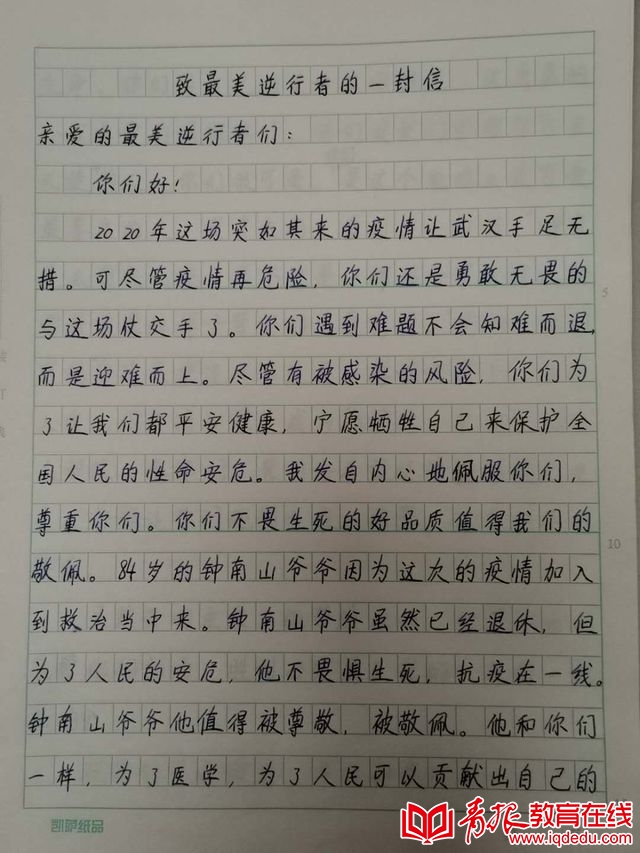 致最美逆行者的一封信
亲爱的最美逆行者们：
你们好！
2020年这场突如其来的疫情让武汉手足无
措。可尽管疫情再危险，你们还是勇敢无畏的
与这场仗交手了。你们遇到难题不会知难而退，
而是迎难而上。尽管有被感染的风险，你们为
了让我们都平安健康，宁愿牺牲自己来保护全
国人民的性命安危。我发自内心地佩服你们，
尊重你们。你们不畏生死的好品质值得我们的
敬佩。84岁的钟南山爷爷因为这次的疫情加入
到救治当中来。钟南山爷爷虽然已经退休，但
为了人民的安危，他不畏惧生死，抗疫在一线。
钟南山爷爷他值得被尊敬，被敬佩。他和你们
一样，为了医学，为了人民可以贡献出自己的
5
10
凯萨纸品
青报教育在线
www.iqdedu.com